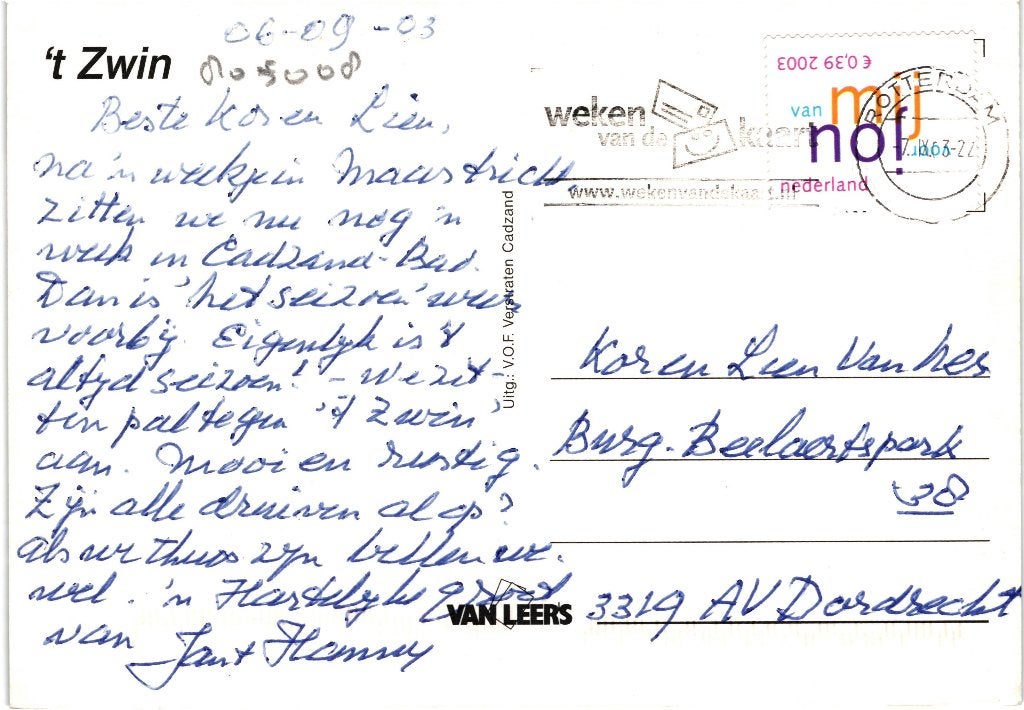 06-09-03
't Zwin
Beste Kor en Lien,
na 'n weekje in Maastricht
zitten we nu nog 'n
week in Cadzand-Bad.
Dan is 'het seizoen' weer
voorbij. Eigenlijk is 't
altijd seizoen! - We zit-
ten pal tegen 't Zwin'
aan. Mooi en rustig.
Zijn alle druiven al op?
Als we thuis zijn bellen we
wel. 'n Hartelijke groet
van
Jan + Hanny
Uitg.: V.O.F. Verstraten Cadzand
VAN LEER'S
weken
van de kaart
www.wekenvandekaart.nl
€ 0,39 2003
van mij
voor
jou
nederland
ROTTERDAM
Kor en Lien Van Nes
Burg. Beelaertspark
38
3319 AV Dordrecht